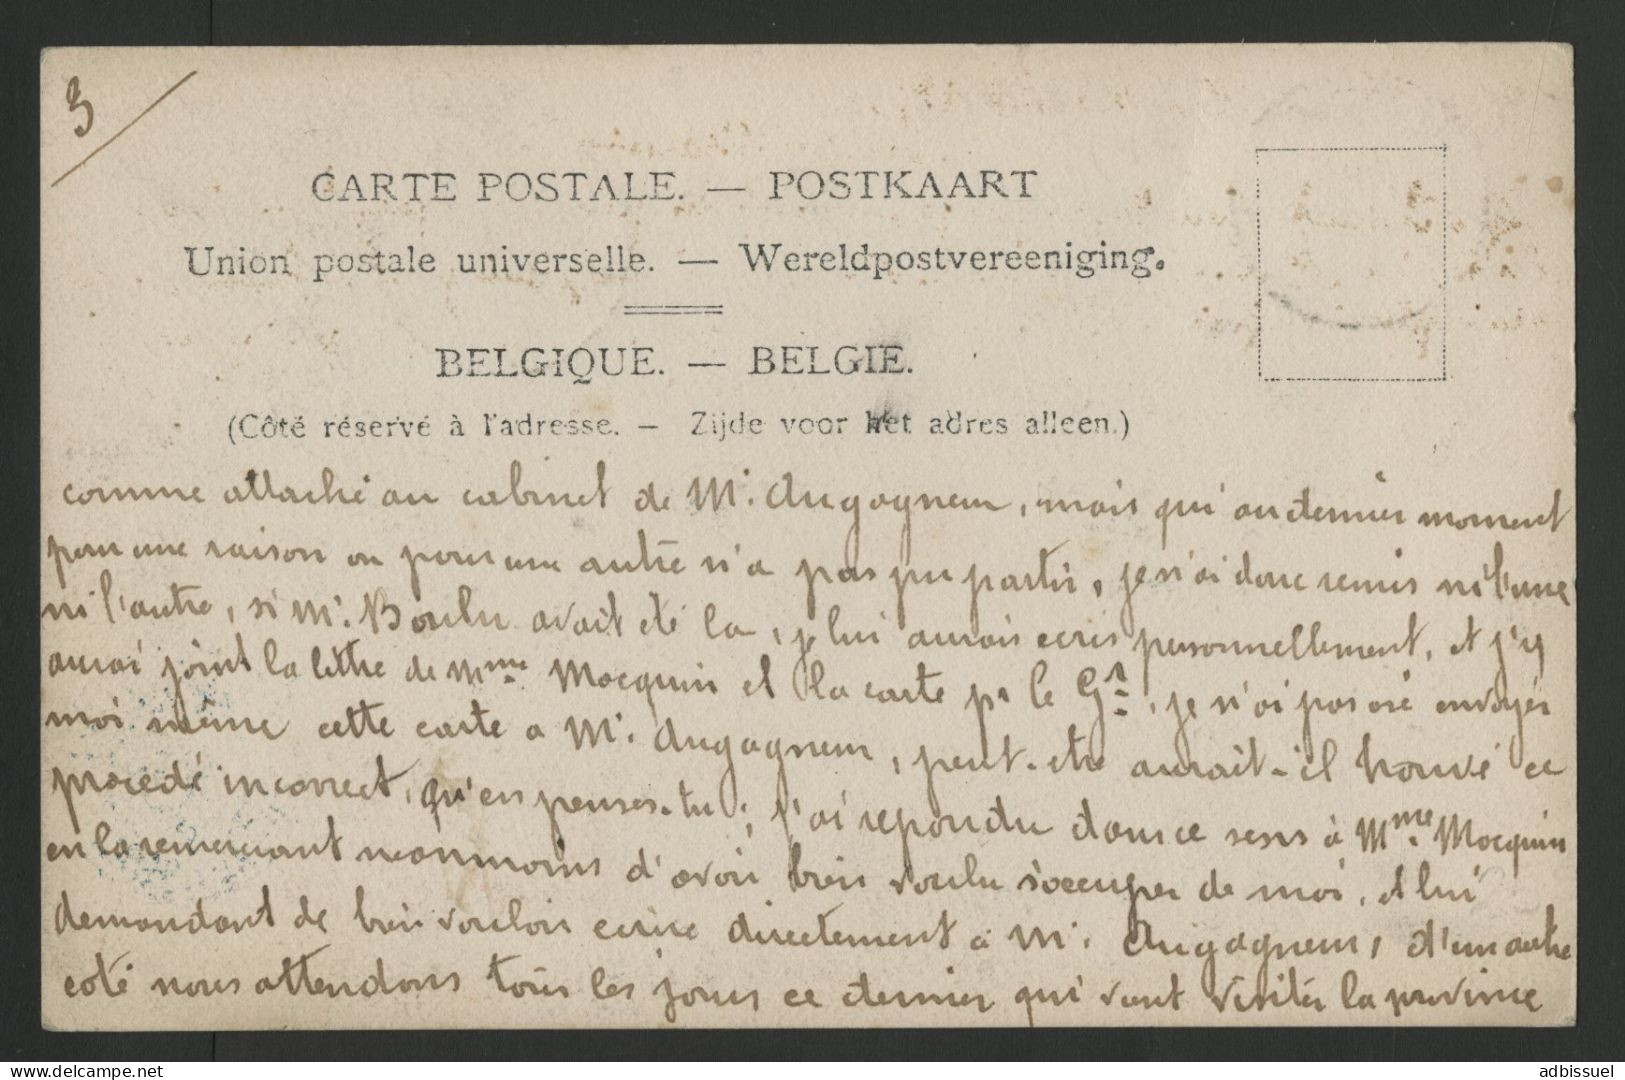 3
CARTE POSTALE. — POSTKAART
Union postale universelle. — Wereldpostvereeniging.
BELGIQUE. — BELGIE.
(Côté réservé à l'adresse. — Zijde voor het adres alleen.)
comme attaché au cabinet de Mr. Augagneur, mais qui au dernier moment
pour une raison ou pour une autre n'a pas pu partir, je n'ai donc remis ni l'une
ni l'autre, si Mr. Boulu avait été la, je lui aurais ecris personnellement, et j'y
aurai joint la lettre de Mme Mocquin et la carte pr le Gal, je n'ai pas osé envoyer
moi même cette carte a Mr. Augagneur, peut-etre aurait-il trouvé ce
procédé incorrect, qu'en penses-tu; j'ai repondu dans ce sens à Mme Mocquin
en la remerciant neanmoins d'avoir bien voulu s'occuper de moi, et lui
demandant de bien vouloir ecrire directement à Mr. Augagneur, d'un autre
coté nous attendons tous les jours ce dernier qui vient visiter la province
adbissuel
www.delcampe.net